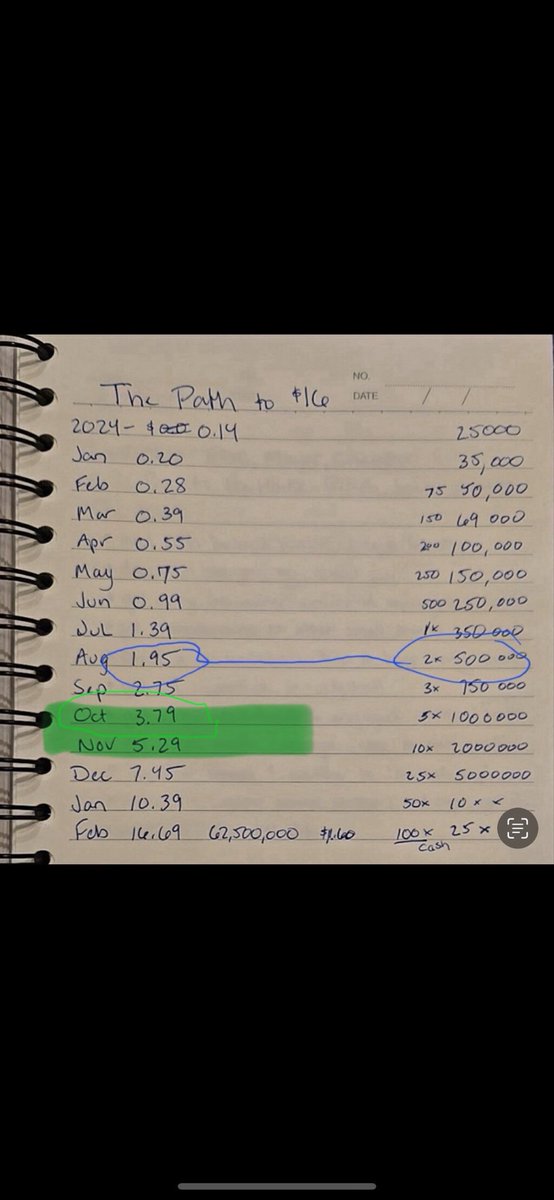 NO.
The Path to $16 DATE / /
2024- 0.14 25000
Jan 0.20 35,000
Feb 0.28 75 50,000
Mar 0.39 150 69 000
Apr 0.55 200 100,000
May 0.75 250 150,000
Jun 0.99 500 250,000
Jul 1.39 1x 350 000
Aug 1.95 2x 500 000
Sep 2.75 3x 750 000
Oct 3.79 5x 1000000
Nov 5.29 10x 2000000
Dec 7.45 25x 5000000
Jan 10.39 50x 10 x x
Feb 16.69 62,500,000 $1.60 100x 25 x
cash